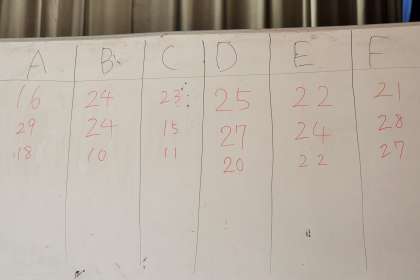 A B C D E F
16 24 23 25 22 21
29 24 15 27 24 28
18 10 11 20 22 27